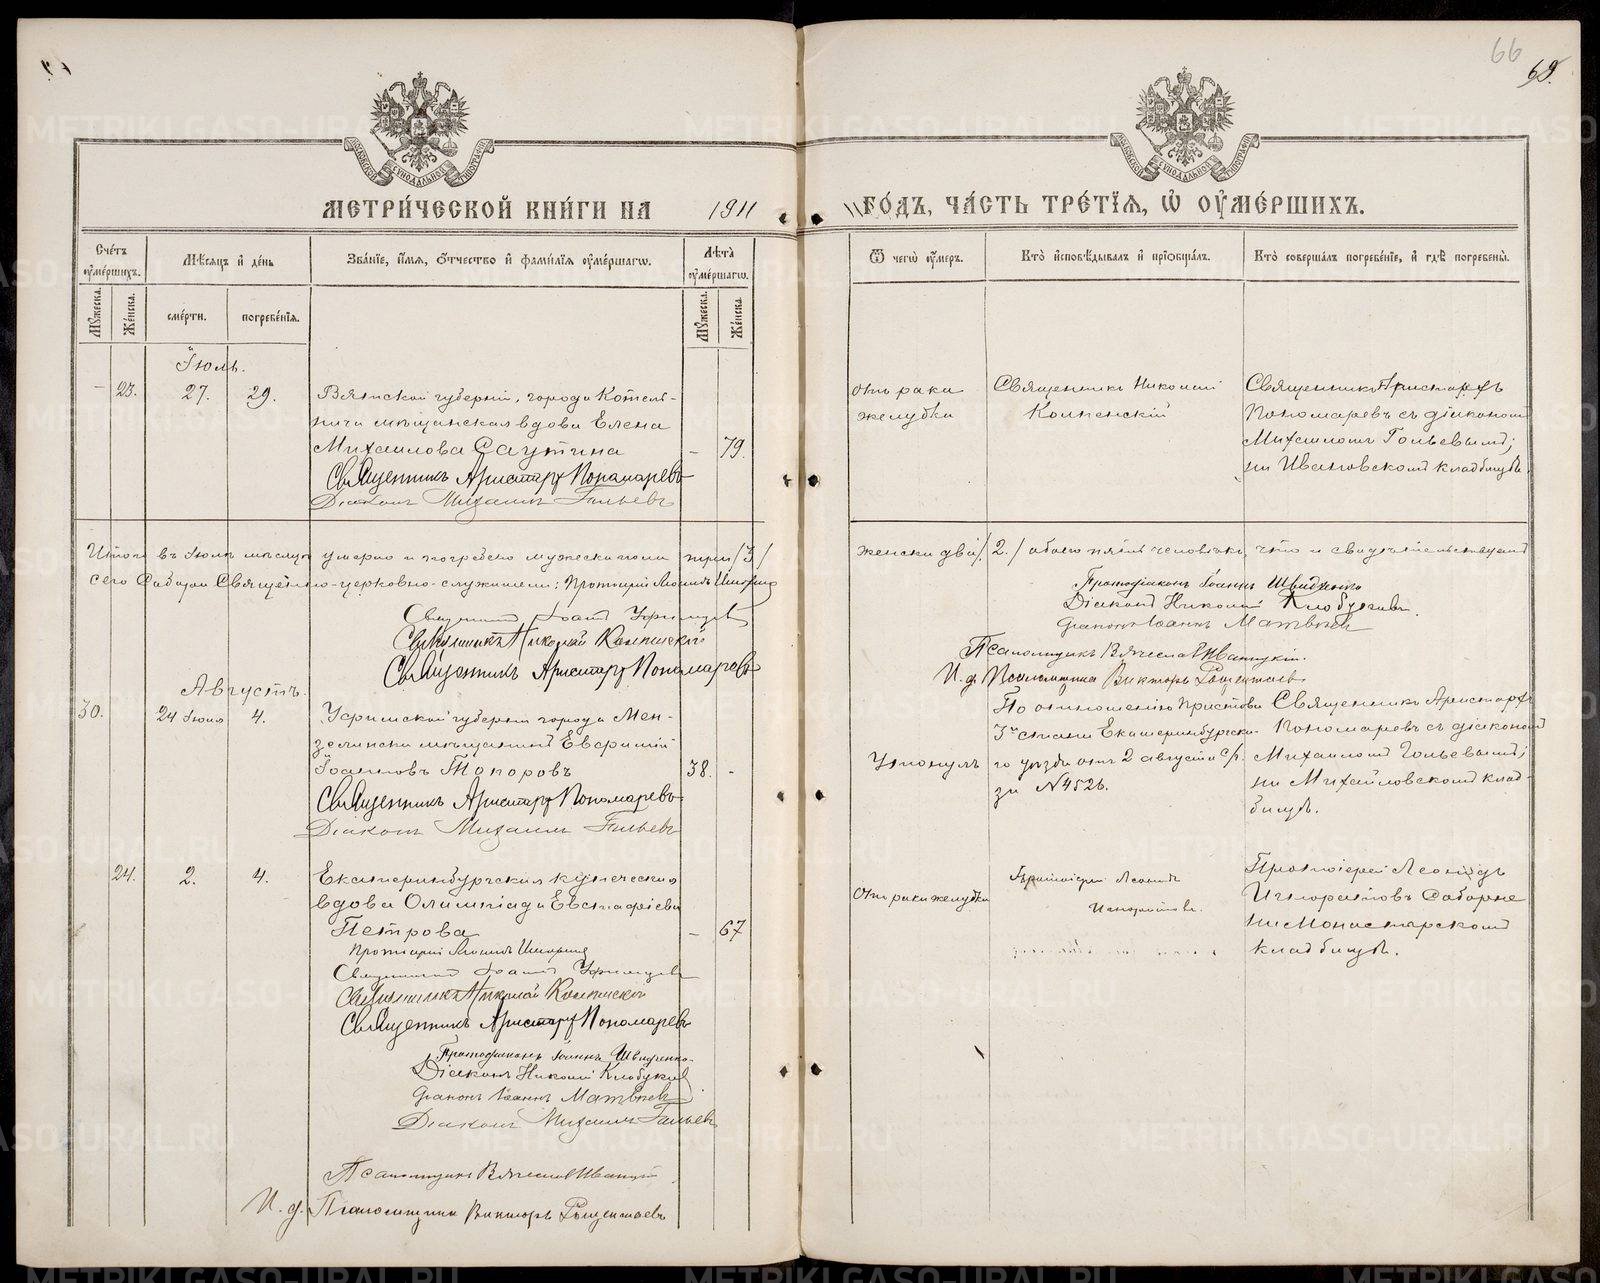 66
69.
МЕТРИ́ЧЕСКОЙ КНИ́ГИ НА 1911 ГО́ДЪ, ЧА́СТЬ ТРЕ́ТІЯ, Ѽ ОУ҆МЕ́РШИХЪ.
Сче́тъ оу҆ме́ршихъ.
Мꙋ́жеска.
Же́нска.
Мѣ́сяцъ и҆ де́нь
сме́рти.
погребе́нїя.
Зва́нїе, и҆́мя, ѻ҆́тчество и҆ фами́лїя оу҆ме́ршагѡ.
Лѣ́та оу҆ме́ршагѡ.
Мꙋ́жеска.
Же́нска.
Ѿ чегѡ̀ оу҆́меръ.
Кто̀ и҆сповѣ́дывалъ и҆ прїѡбща́лъ.
Кто̀ соверша́лъ погребе́нїе, и҆ гдѣ̀ погребены̀.
Іюль.
– 23. 27. 29.
Вятской губерніи, города Котель-
нича мѣщанская вдова Елена
Михаилова Саутина
– 79.
Священникъ Аристархъ Пономаревъ
Діаконъ Михаилъ Гольевъ
отъ рака
желудка
Священникъ Николай
Священникъ Аристархъ
Пономаревъ съ діакономъ
Михаиломъ Гольевымъ;
на Ивановскомъ кладбищѣ.
Итого въ Іюлѣ мѣсяцѣ умерло и погребено мужеска пола три /3/
женска два /2/ обоего пять человѣкъ, что и свидѣтельствуютъ
сего Собора Священно-церковно-служители: Протоіерей Леонидъ Игноратовъ
Священникъ Іоаннъ Уфимцевъ
Священникъ Николай
Священникъ Аристархъ Пономаревъ
Протодіаконъ Іоаннъ
Діаконъ Николай Клобуковъ
Діаконъ Іоаннъ Матвѣевъ
Псаломщикъ Вячеславъ Иваницкій.
И. д. Псаломщика Викторъ
Августъ.
30. 24 Іюля 4.
Уфимской губерніи города Мен-
зелинска мѣщанинъ Евфимій
Іоанновъ Топоровъ
38. –
Священникъ Аристархъ Пономаревъ
Діаконъ Михаилъ Гольевъ
Утонулъ
По отношенію Пристава
3го стана Екатеринбургска-
го уѣзда отъ 2 августа с/г.
за №4526.
Священникъ Аристархъ
Пономаревъ съ діакономъ
Михаиломъ Гольевымъ;
на Михайловскомъ клад-
бищѣ.
24. 2. 4.
Екатеринбургская купеческая
вдова Олимпіада Евстафіева
Петрова
– 67
Протоіерей Леонидъ Игноратовъ
Священникъ Іоаннъ Уфимцевъ
Священникъ Николай
Священникъ Аристархъ Пономаревъ
Протодіаконъ Іоаннъ
Діаконъ Николай Клобуковъ
Діаконъ Іоаннъ Матвѣевъ
Діаконъ Михаилъ Гольевъ
Псаломщикъ Вячеславъ Иваницкій
И. д. Псаломщика Викторъ
Отъ рака желудка
Протоіерей Леонидъ
Игноратовъ.
Протоіерей Леонидъ
Игноратовъ Соборне
на Монастырскомъ
кладбищѣ.
METRIKI.GASO-URAL.RU